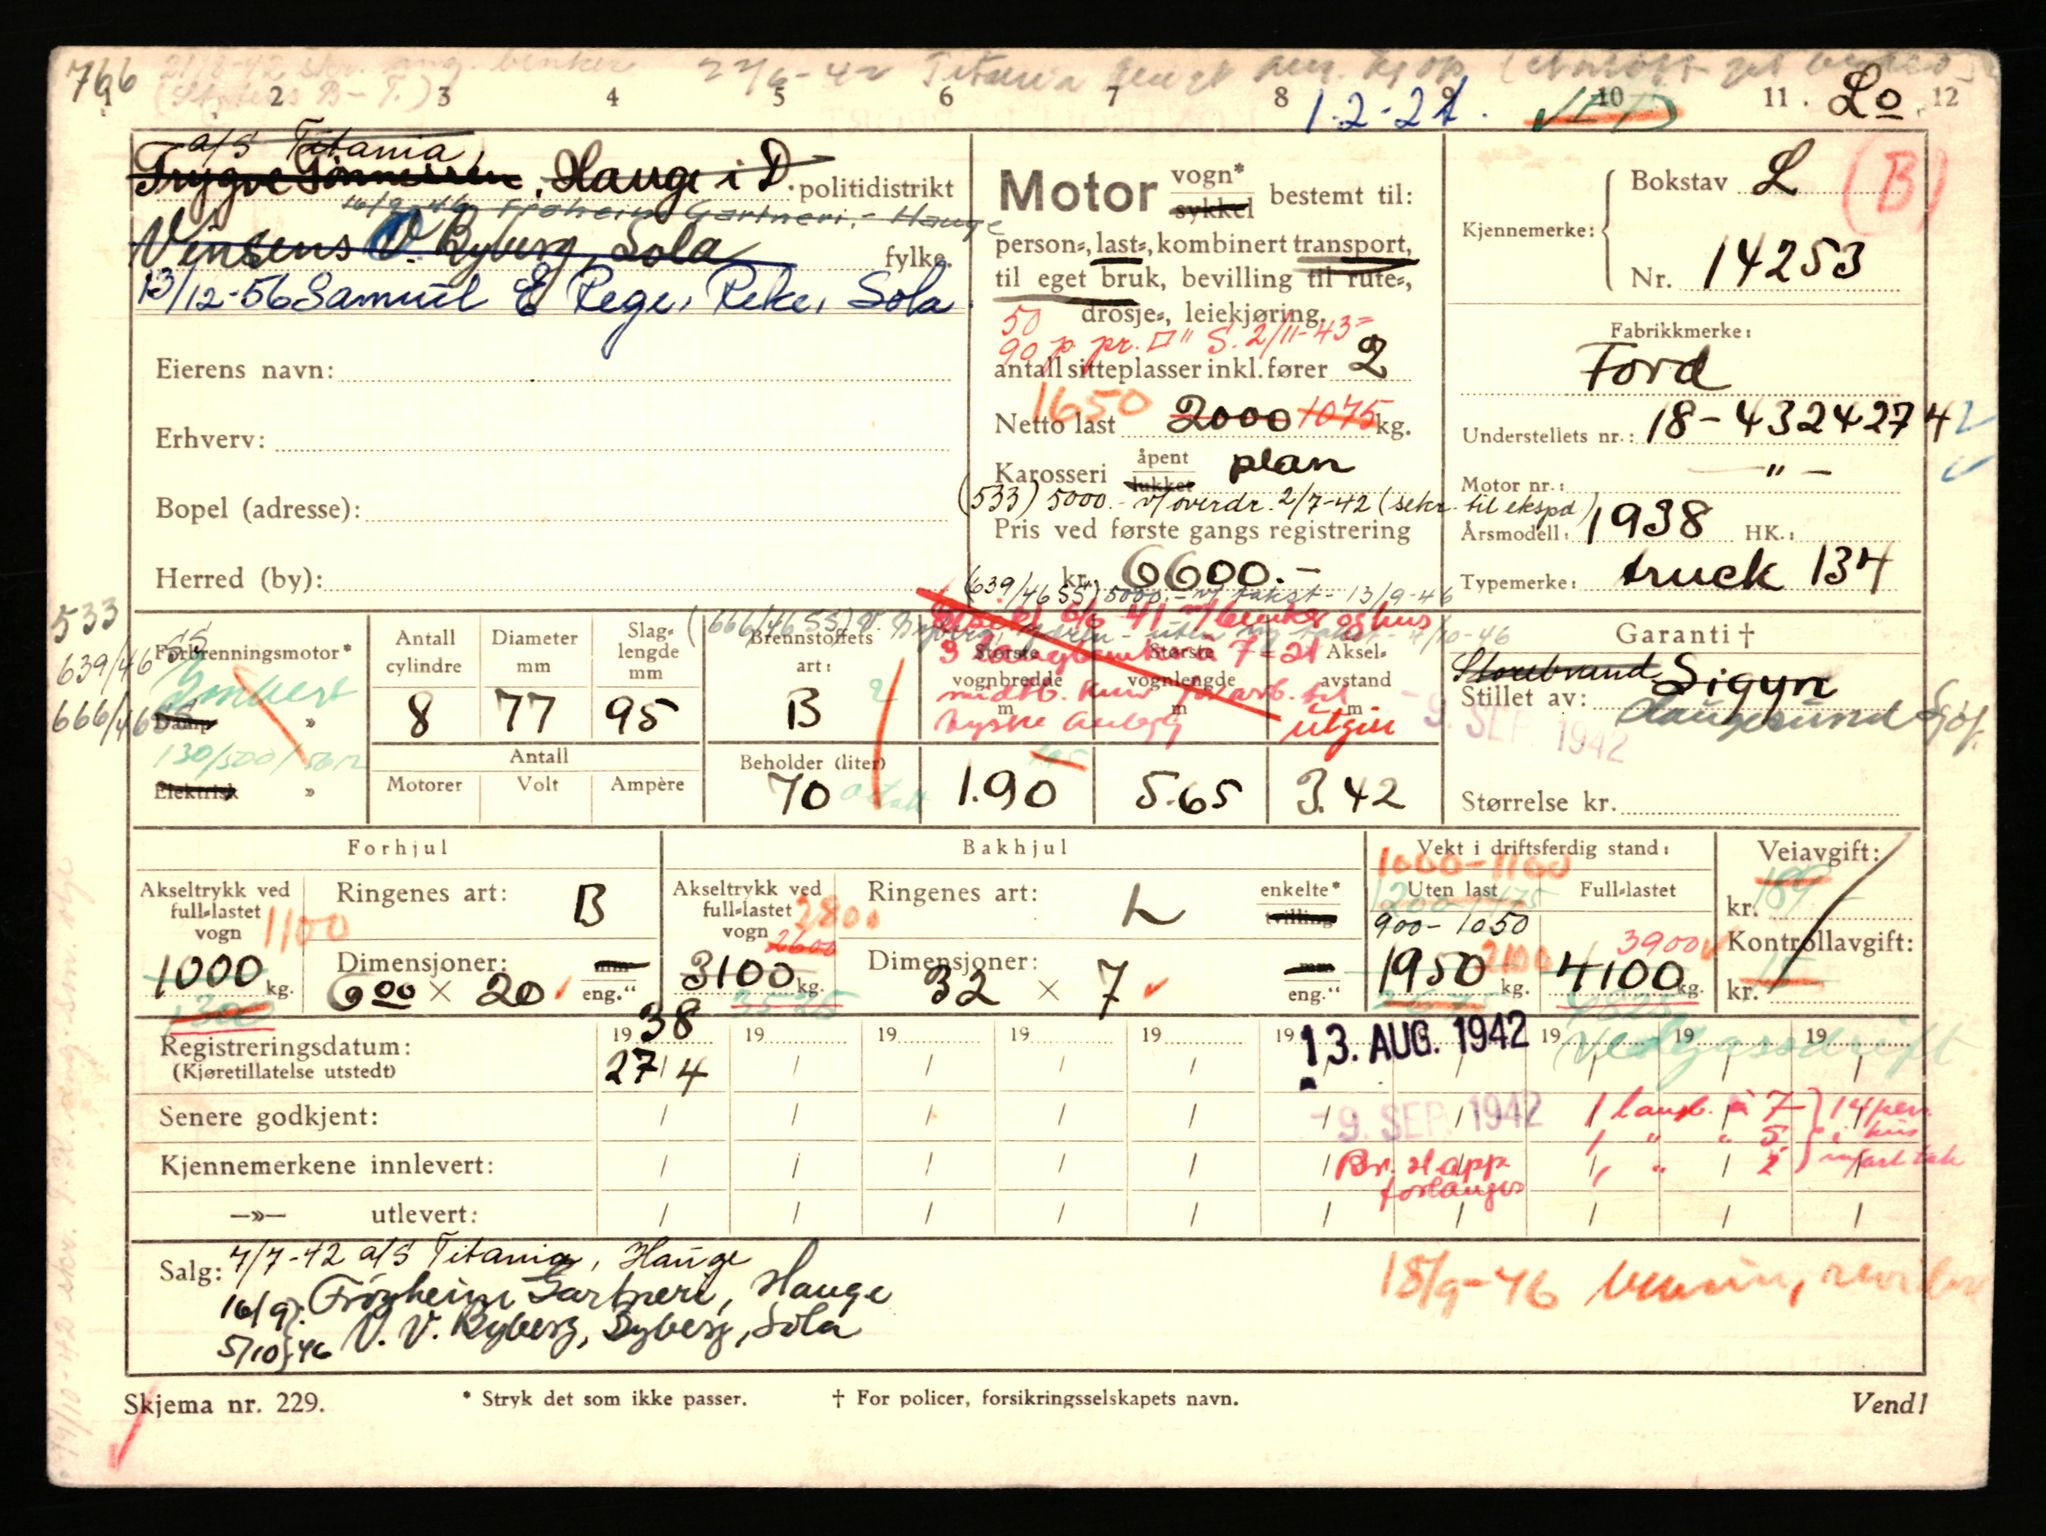 766
1 2 3 4 5 6 7 8 9 10 11 12
22/6-42 Titania
1-2-24.
Lo
a/S Titania,
Trygve Tønnessen, Hauge i D. politidistrikt
16/9-46 Frøheim Gartneri, - Hauge
Vinsens V. Ryberg, Sola fylke.
13/12-56 Samuel E Rege, Reke, Sola.
Eierens navn:
Erhverv:
Bopel (adresse):
Herred (by):
Motor vogn* sykkel bestemt til:
person=, last=, kombinert transport,
til eget bruk, bevilling til rute=,
drosje=, leiekjøring.
50
90 p. pr. S. 2/11-43
antall sitteplasser inkl. fører 2
1650
Netto last 2000 1075 kg.
Karosseri åpent lukket plan
(533) 5000.- v/ overdr. 2/7-42 (sekr. til ekspd)
Pris ved første gangs registrering
kr. 6600.-
(639/46 SS) 5000.- v/ takst - 13/9-46
Kjennemerke:
Bokstav L (B)
Nr. 14253
Fabrikkmerke:
Ford
Understellets nr.: 18-4324274
Motor nr.: - " -
Årsmodell: 1938 HK.:
Typemerke: truck 134
533
639/46 SS
666/46 SS
Forbrenningsmotor*
Damp »
130/500/
Elektrisk »
Antall cylindre
8
Diameter mm
77
Slag=lengde mm
95
Antall
Motorer Volt Ampère
(666/46 SS) V. Ryberg, - uten ny takst - 4/10-46
Brennstoffets art:
B
Beholder (liter)
70
Største vognbredde m
1.90
Største vognlengde m
5.65
Aksel=avstand m
3.42
utgår
Garanti †
Storebrand Sigyn
Stillet av: Haugesund Sjøf.
- 9. SEP. 1942
Størrelse kr.
Forhjul
Akseltrykk ved full=lastet vogn
1100
1000 kg.
1300
Ringenes art: B
Dimensjoner: mm
6.00 × 20 eng."
Bakhjul
Akseltrykk ved full=lastet vogn
2800
2600
3100 kg.
3525
Ringenes art: L enkelte* tvilling
Dimensjoner: mm
32 × 7 eng."
Vekt i driftsferdig stand:
1000-1100
Uten last
1200-1175
900-1050
2100
1950 kg.
2675
Full=lastet
3900
4100 kg.
4825
Veiavgift:
kr. 189
Kontrollavgift:
kr. 15
Registreringsdatum:
(Kjøretillatelse utstedt)
19 38 19 19 19 19 19 19 19 19
27/4
13. AUG. 1942
Vedgassdrift
Senere godkjent:
- 9. SEP. 1942
1 langb. à 7
1 " " 5
14 pers.
Kjennemerkene innlevert:
Br. H app
forlanges
—»— utlevert:
Salg: 7/7-42 a/S Titania, Hauge
16/9: Frøyheim Gartneri, Hauge
5/10-46 V. V. Ryberg, Ryberg, Sola
18/9-46 bensin,
Skjema nr. 229.
* Stryk det som ikke passer.
† For policer, forsikringsselskapets navn.
Vend!